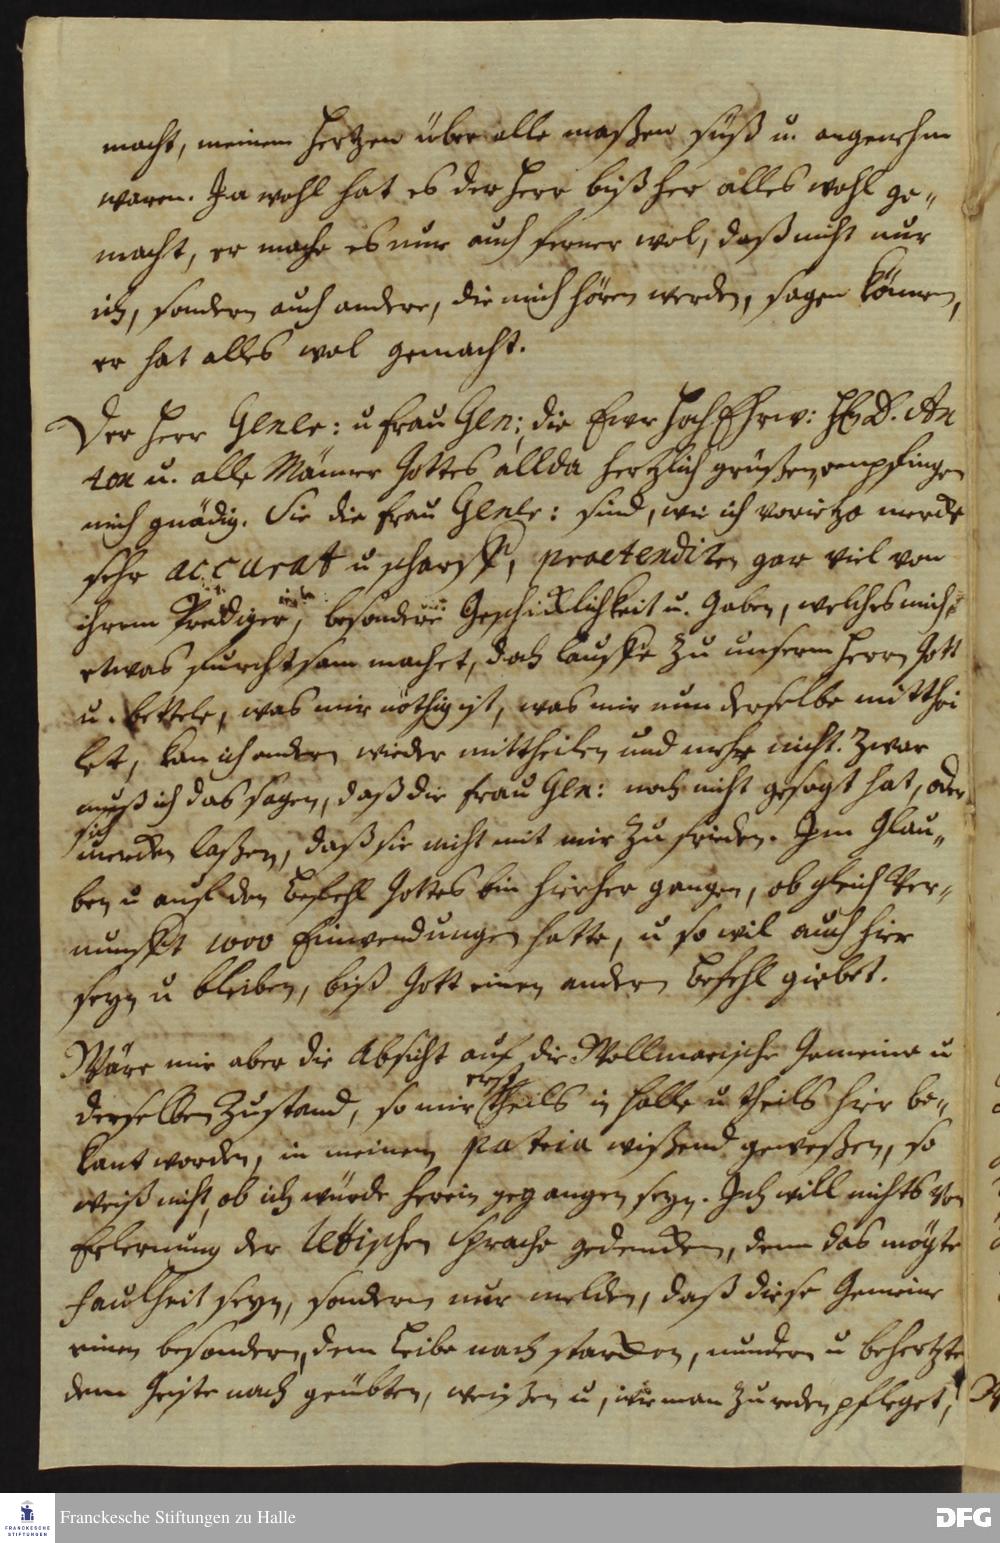 macht, meinem Hertzen über alle maßen süß u. angenehm
waren. Ja wohl hat es der Herr bißher alles wohl ge-
macht, er mache es nur auch ferner wol, daß nicht nur
ich, sondern auch andere, die mich hören werden, sagen können,
er hat alles wol gemacht.
Der Herr Genle: u Frau Gen; die Ewr HochEhrw: HE D. An
ton u. alle Männer Gottes allda hertzlich grüßen, empfingen
mich gnädig. Sie die Frau Genle: sind, wie ich vorietzo mercke
sehr accurat u scharff, praetendiren gar viel von
ihrem Prediger, besondere Geschicklichkeit u. Gaben, welches mich
etwas furchtsam machet, doch lauffe zu unserm Herrn Gott
u. bettele, was mir nöthig ist, was mir nun derselbe mitthei
let, kan ich andern wieder mittheilen und mehr nicht. Zwar
muß ich das sagen, daß die Frau Gen: noch nicht gesagt hat, oder
sich
mercken laßen, daß sie nicht mit mir zu frieden. Im Glau-
ben u auf den Befehl Gottes bin hierher gangen, ob gleich Ver-
nunfft 1000 Einwendungen hatte, u so wil auch hier
seyn u bleiben, biß Gott einen andern Befehl giebet.
Wäre mir aber die Absicht auf die Wollmarische Gemeine u
erst
derselben Zustand, so mir theils in Halle u theils hier be-
kant worden, in meinem patria wißend geweßen, so
weiß nicht, ob ich würde herein gegangen seyn. Ich will nichts von
Erlernung der lettischen Sprache gedencken, denn das mögte
Faulheit seyn, sondern nur melden, daß diese Gemeine
einen besondern, dem Leibe nach starcken, muntern u behertzten
dem Geiste nach geübten, weisen u, wie man zu reden pfleget,
Franckesche Stiftungen zu Halle
FRANCKESCHE
STIFTUNGEN
DFG